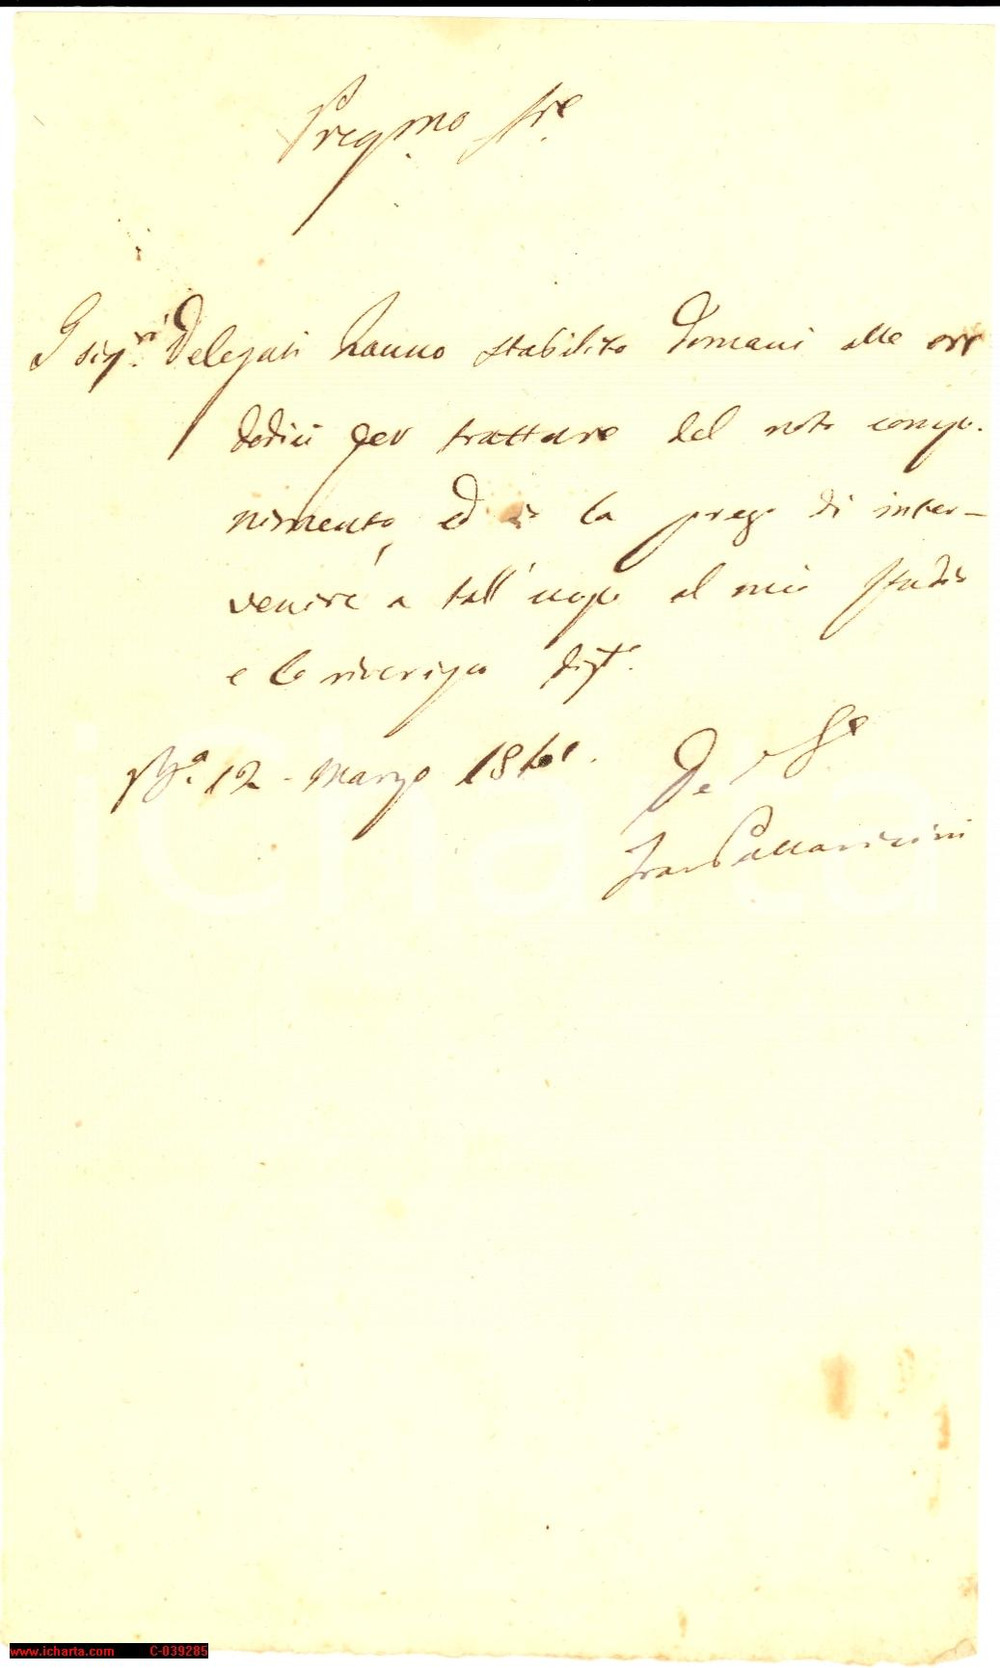 Pregmo Sre
I sigri Delegati hanno stabilito domani alle ore
dodici per trattare del noto compo-
nimento, ed io la prego di inter-
venire a tall'uopo al mio studio
e la riverisco distte.
12 - Marzo
De
Pallavicini
icharta
www.icharta.com C-039285